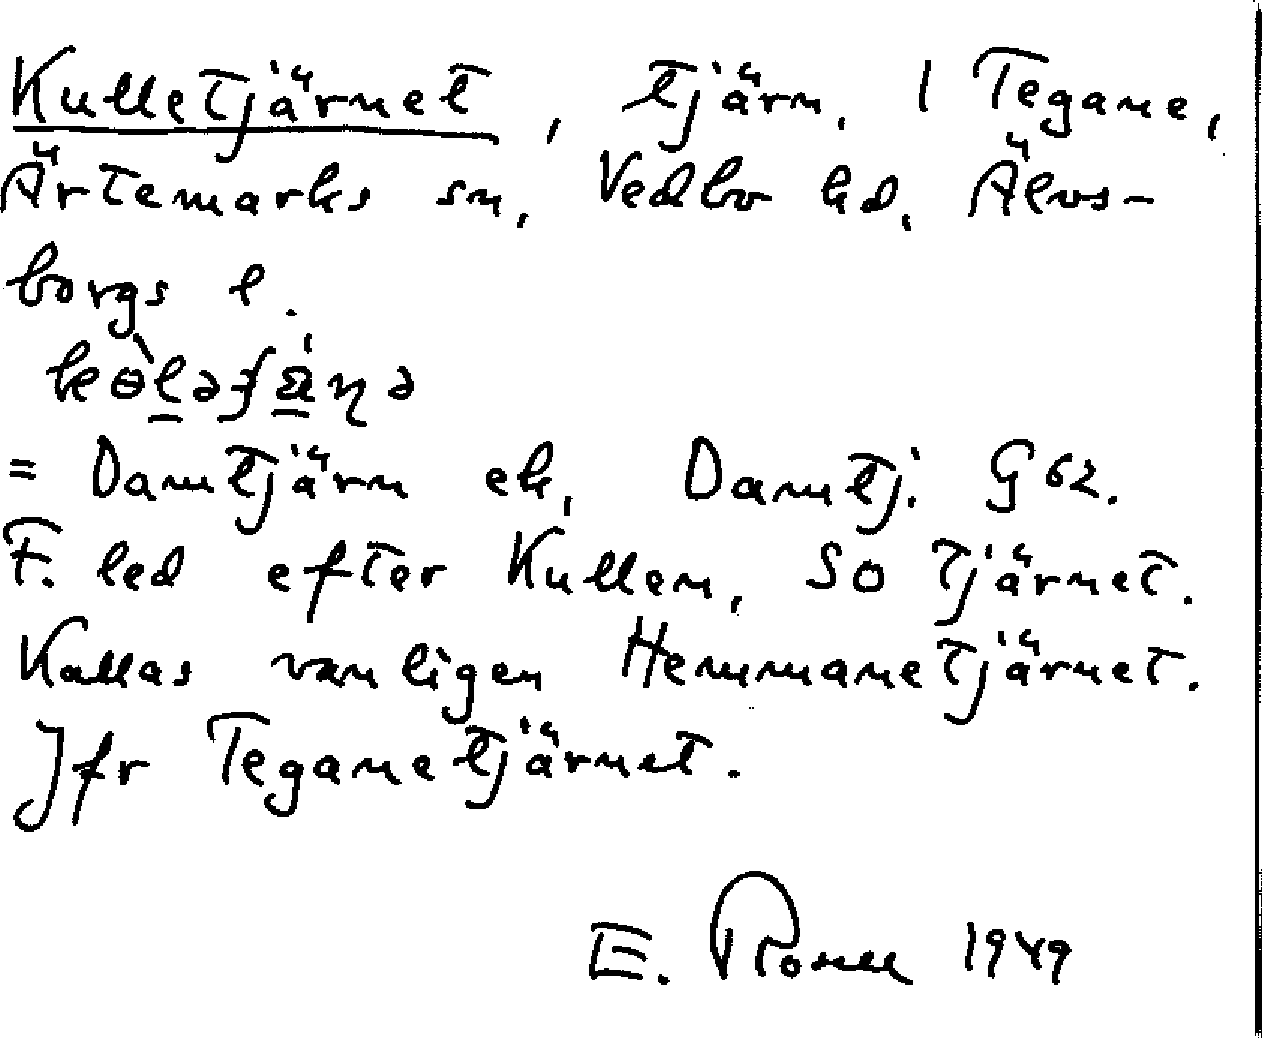 Kulletjärnet, tjärn. 1 Tegane,
Ärtemarks sn, Vedbo hd, Älvs-
borgs l.
= Damtjärn ek, Damtj. G 62.
F. led efter Kullen, SO Tjärnet.
Kallas vanligen Hemmanetjärnet.
Jfr Teganetjärnet.
E. 1949